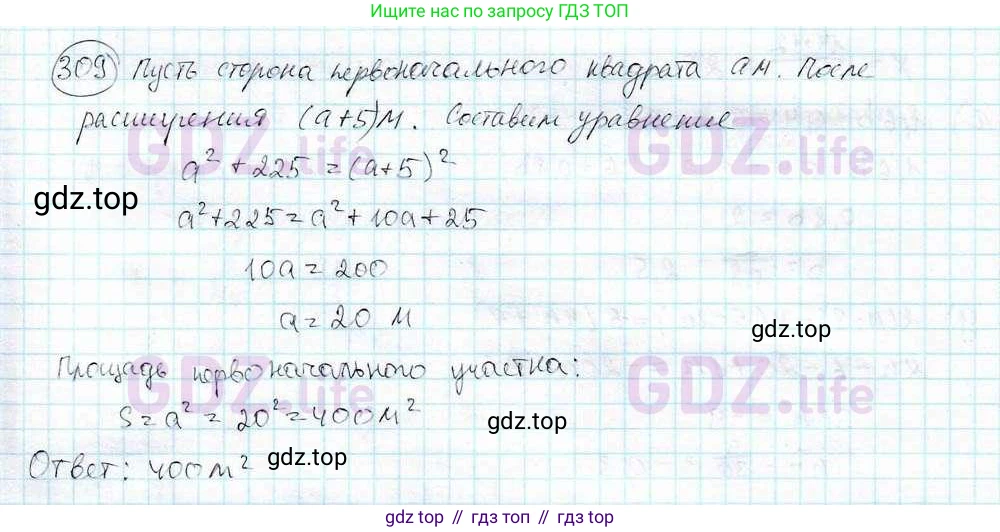 Ищите нас по запросу ГДЗ ТОП
309 Пусть сторона первоначального квадрата a м. После
расширения (a+5) м. Составим уравнение
GDZ.life GDZ.life
a² + 225 = (a+5)²
gdz.top
a² + 225 = a² + 10a + 25
10a = 200
a = 20 м
gdz.top
Площадь первоначального участка:
GDZ.life GDZ.life
S = a² = 20² = 400 м²
gdz.top
Ответ: 400 м²
gdz.top
gdz top // гдз топ // gdz.top